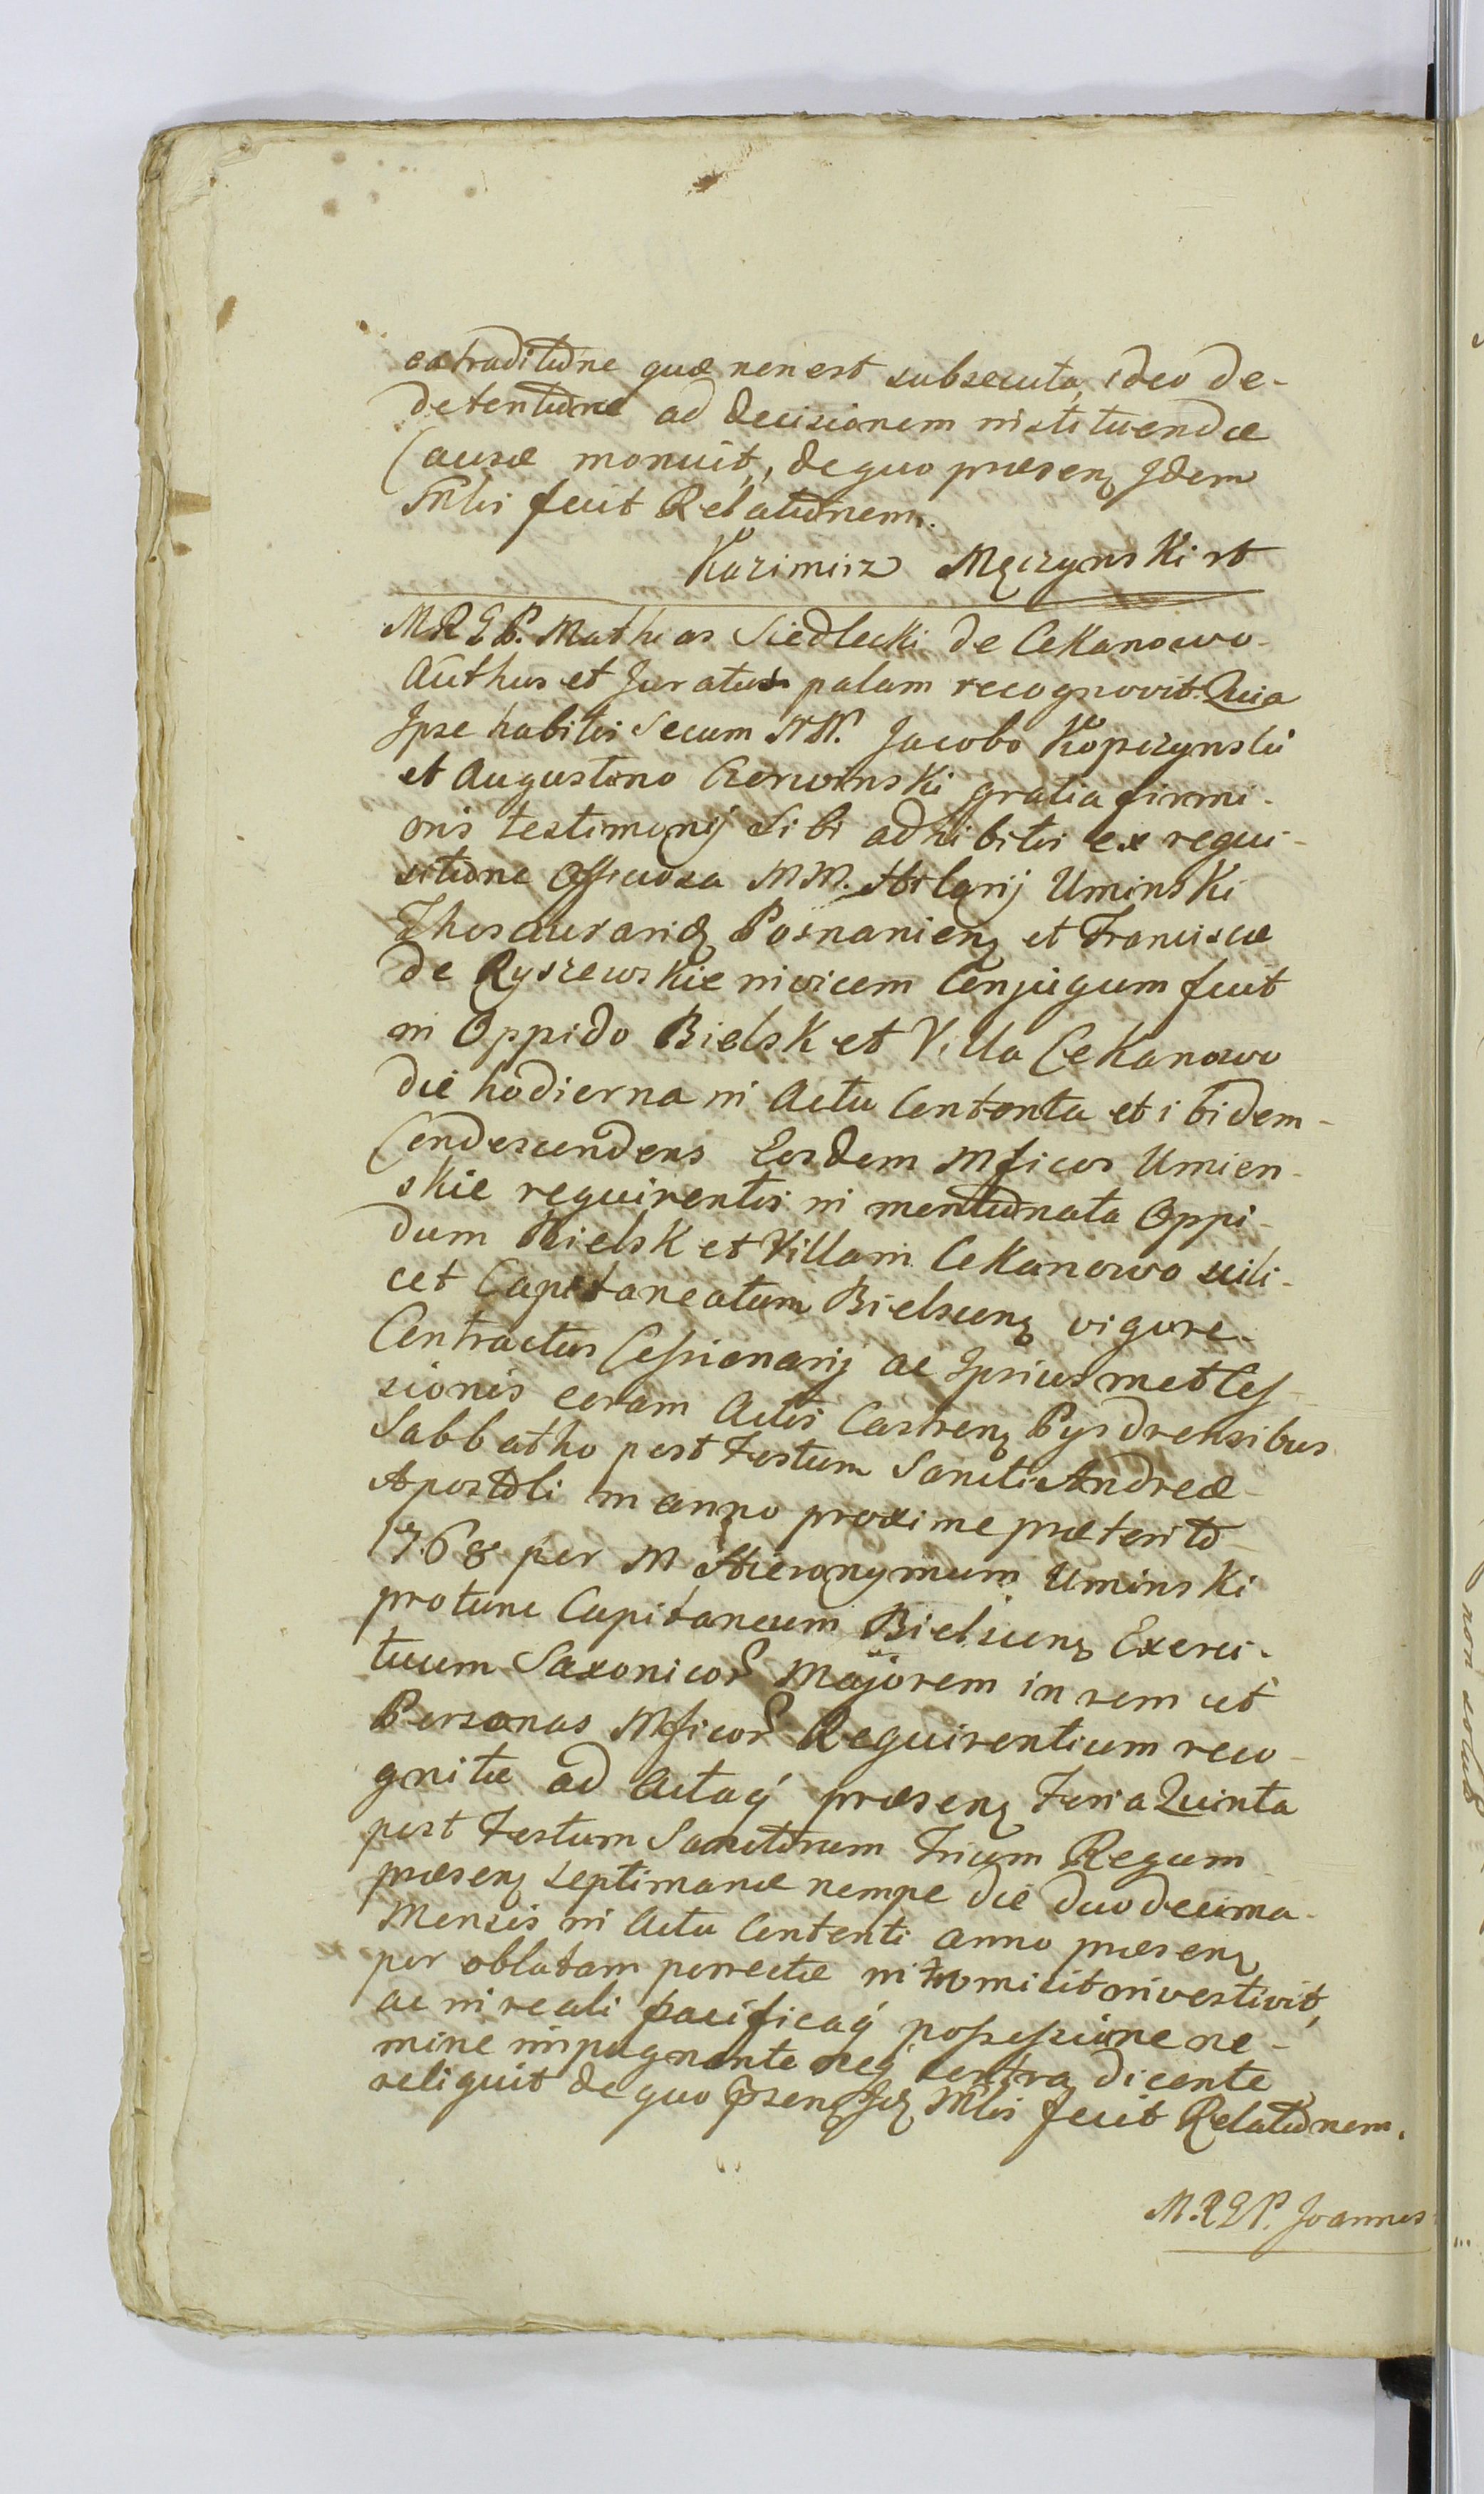 extraditione quæ non est subsecuta, ideo de-
detentione ad decisionem instituendæ
Causæ monuit, de quo præsenq Idem
Mlis fecit Relationem.
Kazimirz Męczynski rt
MREP. Mathias Siedlecki de Cekanowo
Authus et Juratus palam recognovit. Quia
Ipse habitis Secum NN. Jacobo Kopczynski
et Augustino Czerwinski gratia firmi-
oris testimonij Sibi adhibitis ex requi-
sitione Officiosa MM. Hilarij Uminski
Thesauraridq Posnanienq et Franciscæ
de Ryszewskie invicem Conjugum fuit
in Oppido Bielsk et Villa Cekanowo
die hodierna in Actu Contenta et ibidem
Condescendens Eosdem Mficos Umien-
skie requirentes in mentionata Oppi-
dum Bielsk et Villam Cekanowo scili-
cet Capitaneatum Bielscenq vigore
Contractus Cessionarij ac Ipsiusmet Ces-
sionis coram Actis Castrenq Pysdrensibus
Sabbatho post Festum Sancti Andreæ
Apostoli in anno proxime præterito
1768 per M Hieronymum Uminski
protunc Capitaneum Bielscenq Exerci-
tuum Saxonicor Majorem in rem et
Personas Mficor Requirentium reco-
gnitæ ad Actaq præsenq Feria Quinta
post Festum Sanctorum Trium Regum
præsenq septimanæ nempe die duodecima
Mensis in Actu Contenti anno præsenq
per oblatam porrectæ intromisit investivit,
ac in reali pacificaq possessione ne-
mine impugnante neq contra dicente
reliquit de quo pzenq Idq Mlis fecit Relationem.
M.REP. Joannes
non